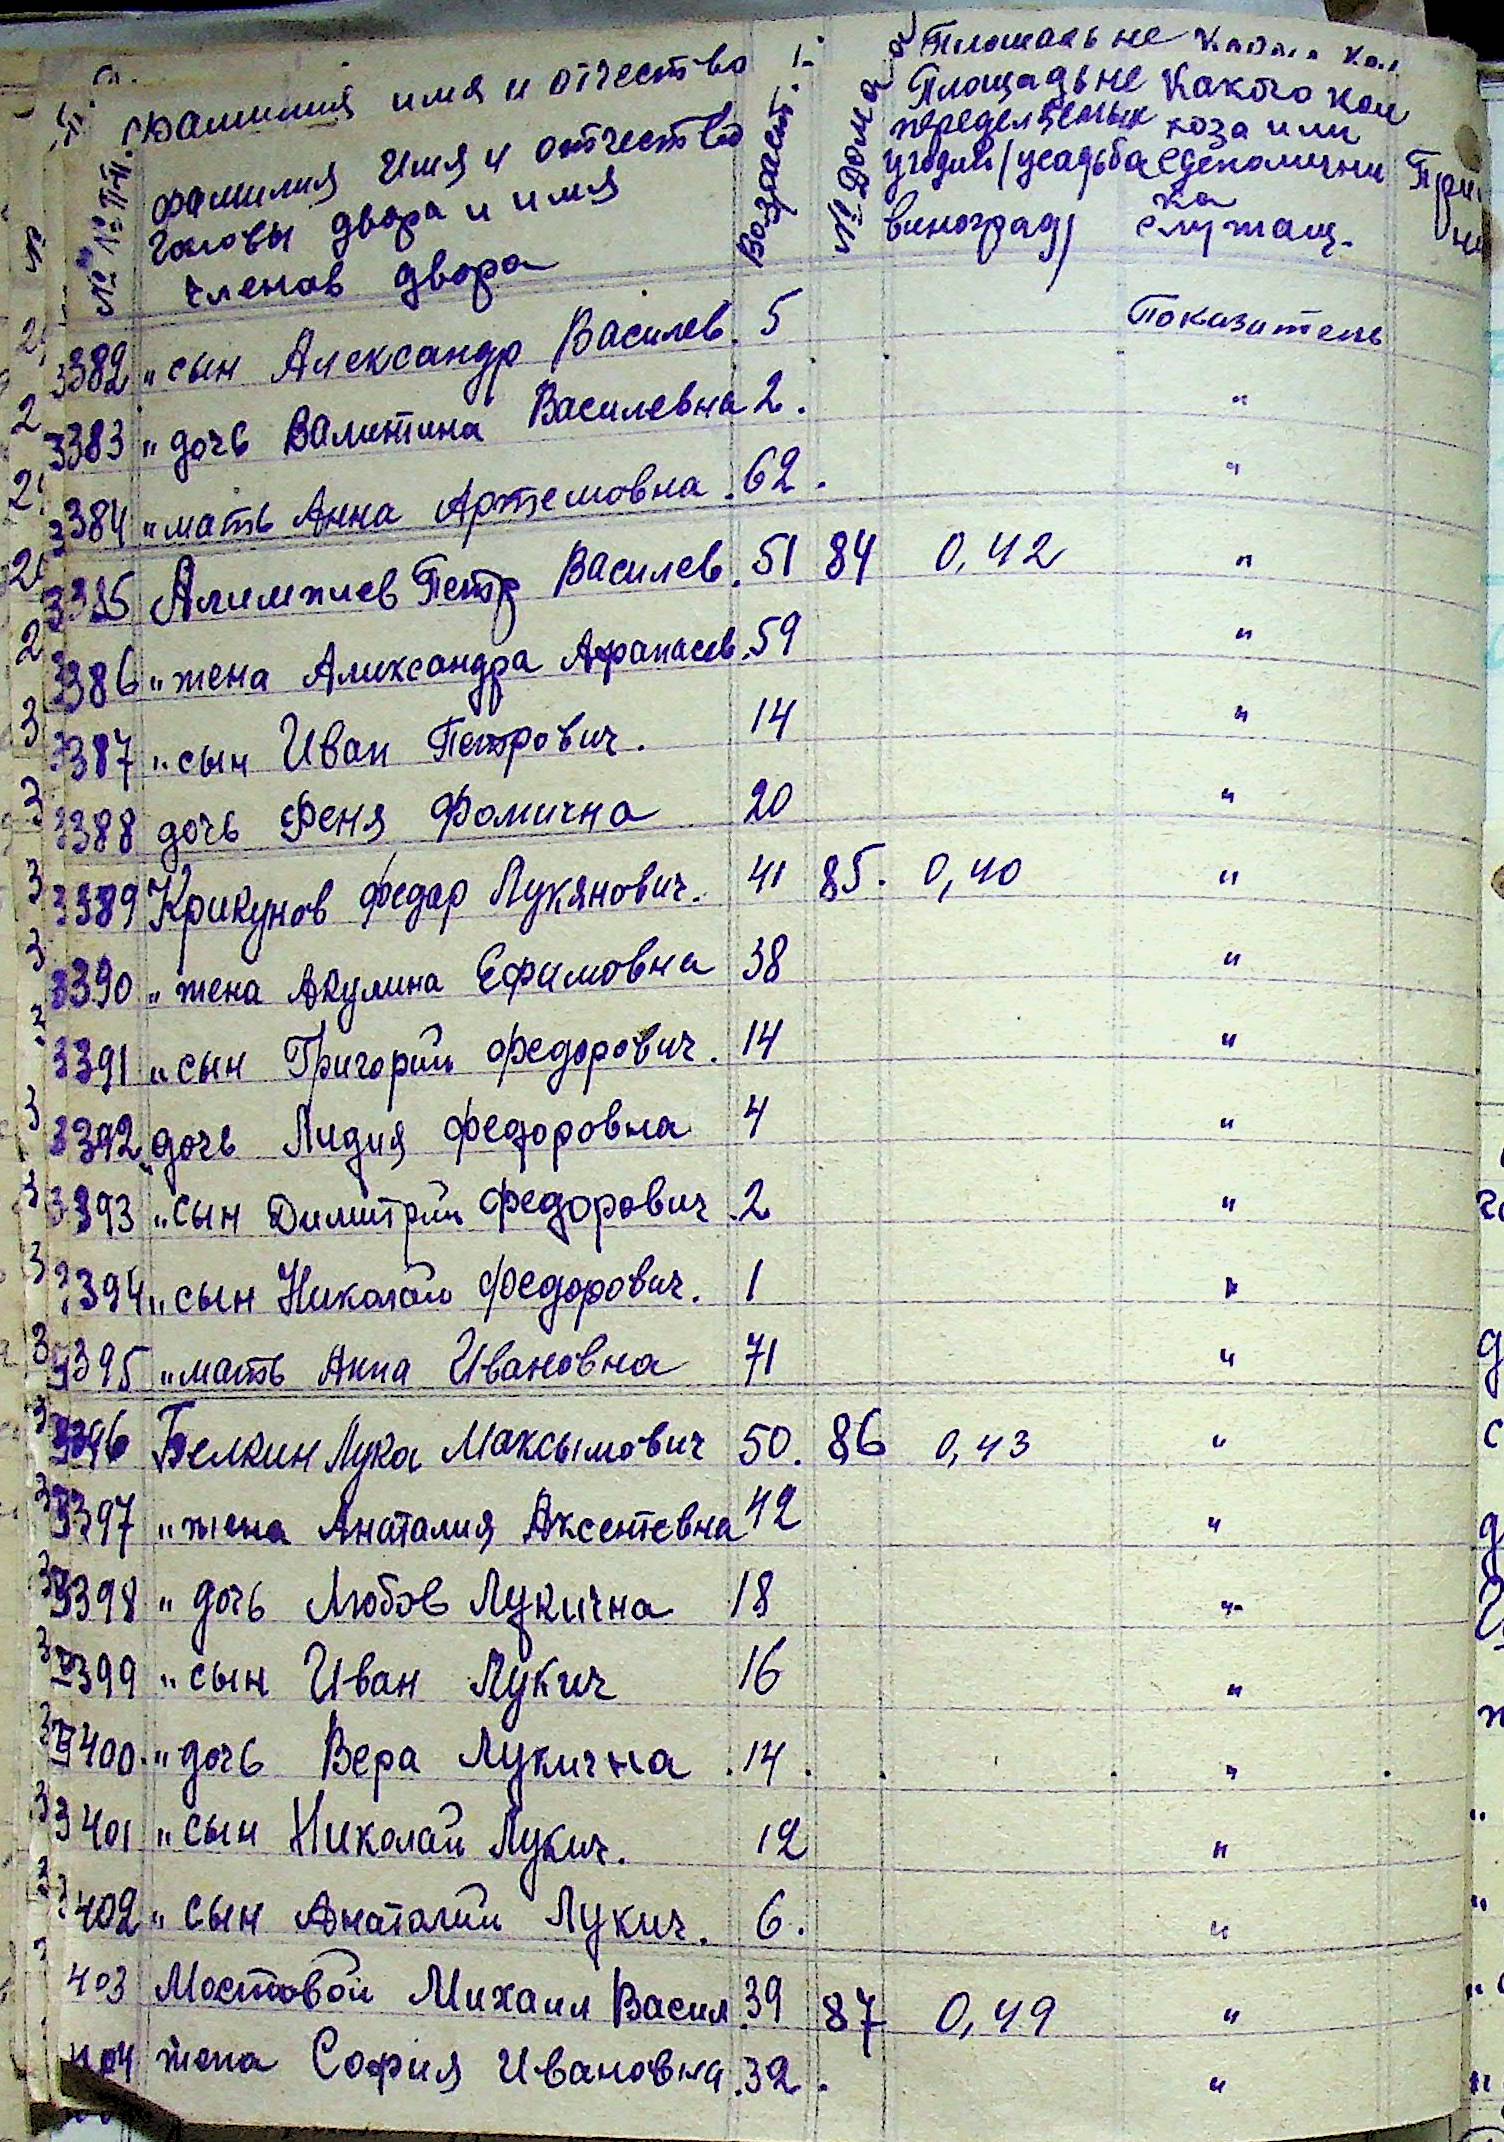 Фамилия имя и отчество
Площадь не
№№ П-П.
фамилия имя и отчество
головы двора и имя
членов двора
Возраст.
№ Дома
Площадь не
передел.
угодий/усадьба
виноград/
Какого кол
хоза или
единолични
ка
служащ.
382 " сын Александр Василев. 5 Показитель
3383 " дочь Валитина Василевна 2. "
3384 " мать Анна Артемовна. 62. "
3385 Алимпиев Петр Василев. 51 84 0,42 "
3386 " жена Александра Афанасев. 59 "
3387 " сын Иван Петрович. 14 "
3388 дочь Феня Фомична 20 "
3389 Крикунов Федар Лукянович. 41 85. 0,40 "
3390 " жена Акулина Ефимовна 38 "
3391 " сын Григорий Федорович. 14 "
3392 дочь Лидия Федоровна 4 "
3393 " сын Димитрий Федорович. 2 "
3394 " сын Николай Федорович. 1 "
3395 " мать Анна Ивановна 71 "
3396 Белкин Лука Максымович 50. 86 0,43 "
3397 " жена Анаталия Аксентевна 42 "
3398 " дочь Любов Лукична 18 "
3399 " сын Иван Лукич 16 "
3400. " дочь Вера Лукична. 14. "
3401 " сын Николай Лукич. 12 "
3402 " сын Анатолий Лукич. 6. "
403 Мостовой Михаил Васил. 39 87 0,49 "
404 жена София Ивановна. 32. "